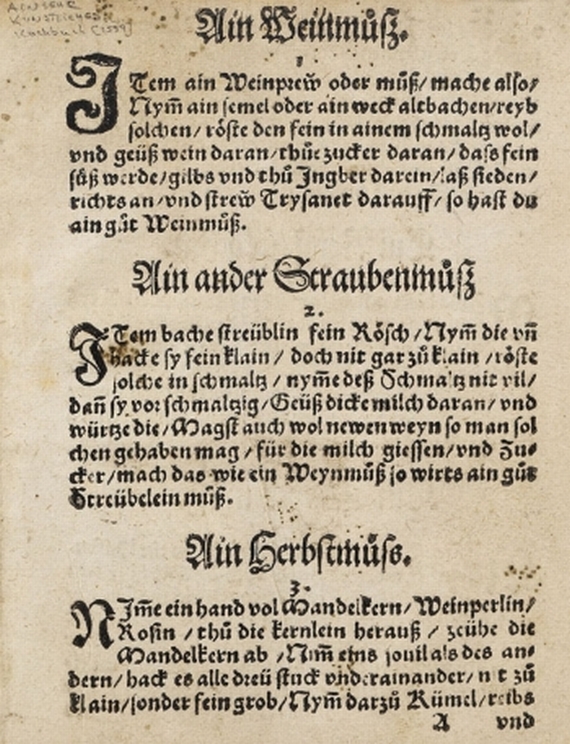 Ain Weinmůß.
1
ITem ain Weinprew̌ oder můß/ mache also/
Nym̃ ain semel oder ain weck altbachen/reyb
solchen/ röste den fein in ainem schmaltz wol/
vnd geüß wein daran/thůe zucker daran/ das fein
süß werde/gilbs vnd thů Ingber darein/laß sieden/
richts an/vnd strew̌ Trysanet darauff/ so hast du
ain gůt Weinmůß.
Ain ander Straubenmůß
2.
ITem bache streüblin fein Rösch/Nym̃ die vñ
hacke sy fein klain/ doch nit gar zů klain/röste
solche in schmaltz/ nym̃e deß Schmaltz nit vil/
dañ sy vor schmaltzig/Geüß dicke milch daran/ vnd
würtze die/Magst auch wol newen weyn so man sol
chen gehaben mag/für die milch giessen/vnd Zu-
cker/mach das wie ein Weynmůß so wirts ain gůt
Streübelein můß.
Ain Herbstmůss.
3.
NIm̃e ein hand vol Mandelkern/Weinperlin/
Rosin/thů die kernlein herauß/ zeühe die
Mandelkern ab/Nim̃ eins souil als des an-
dern/hack es alle dreü stuck vndereinander/nit zů
klain/sonder fein grob/Nym̃ darzů Kümel/reibs
A vnd